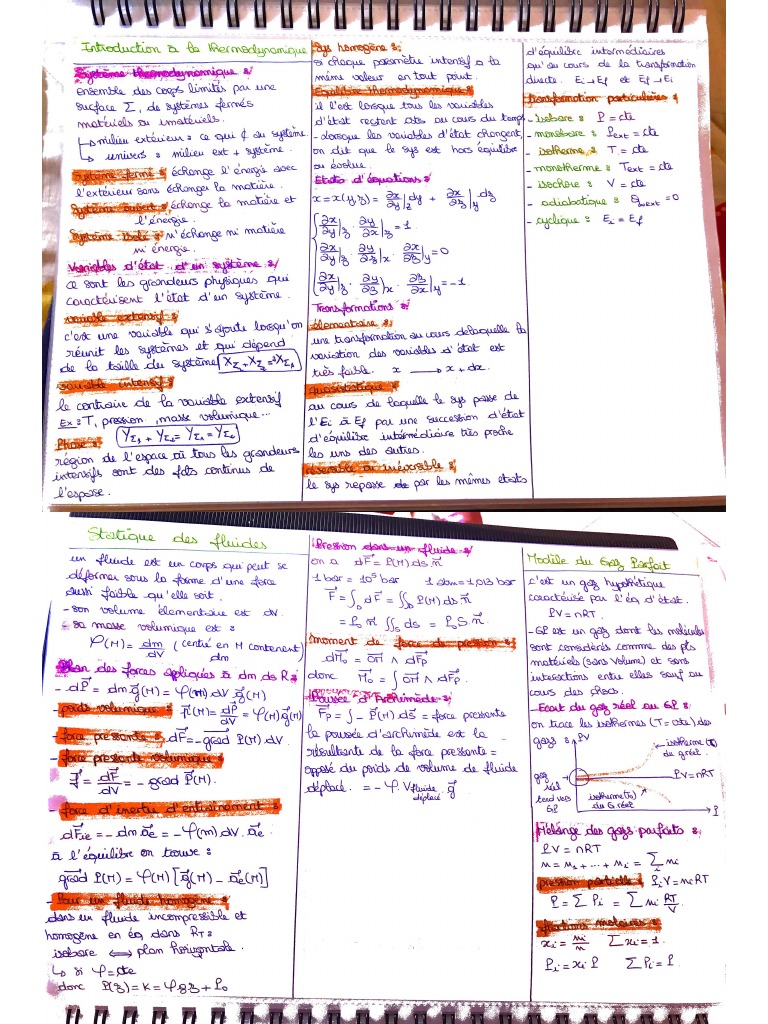 Introduction à la thermodynamique
Système thermodynamique :
ensemble des corps limités par une
surface Σ, de systèmes fermés
matériels ou imatériels.
↳ milieu extérieur : ce qui ∉ au système
↳ univers : milieu ext + système.
Système fermé : échange l'énergie avec
l'extérieur sans échanger la matière.
Système ouvert : échange la matière et
l'énergie.
Système isolé : n'échange ni matière
ni énergie.
Variables d'état d'un système :
ce sont les grandeurs physiques qui
caractérisent l'état d'un système.
variable extensif :
c'est une variable qui s'ajoute lorsqu'on
réunit les systèmes et qui dépend
de la taille du système
variable intensif :
le contraire de la variable extensif
Ex : T, pression, masse volumique...
Phase :
région de l'espace où tous les grandeurs
intensifs sont des fcts continus de
l'espace.
Sys homogène :
si chaque paramètre intensif a la
même valeur en tout point.
Equilibre thermodynamique :
il l'est lorsque tous les variables
d'état restent ctes au cours du temps
- lorsque les variables d'état changent,
on dit que le sys est hors équilibre
ou évolue.
Etats d'équations :
x = x(y,z) = ∂x/∂y|z dy + ∂x/∂z|y dz
∂x/∂y|z · ∂y/∂x|z = 1
∂x/∂y|z · ∂y/∂z|x · ∂z/∂x|y = -1
Transformations :
élémentaire :
une transformation au cours delaquelle la
variation des variables d'état est
très faible. x → x + dx.
quasistatique :
au cours de laquelle le sys passe de
l'Ei à Ef par une succession d'état
d'équilibre intermédiaire très proche
les uns des autres.
réversible ou inversible :
le sys repasse par les mêmes etats
d'équilibre intermédiaires
qu'au cours de la transformation
directe. Ei → Ef et Ef → Ei
Transformation particulières :
- isobare : P = cte
- monobare : Pext = cte
- isotherme : T = cte
- monotherme : Text = cte
- isochore : V = cte
- adiabatique : = 0
- cyclique : Ei = Ef
Statique des fluides
un fluide est un corps qui peut se
déformer sous la forme d'une force
aussi faible qu'elle soit.
- son volume élémentaire est dV.
- sa masse volumique est :
φ(M) = dm/dV (centré en M contenent
dm
Bilan des forces apliqués à dm ds R :
- dP⃗ = dm g⃗(M) = φ(M) dV g⃗(M)
- poids volumique : = dP⃗/dV = φ(M) g⃗(M)
- force pressante : dF⃗ = -grad⃗ P(M) dV.
- force pressante volumique :
f⃗ = dF⃗/dV = - grad⃗ P(M).
- force d'inertie d'entrainement :
dF⃗ie = - dm a⃗e = - φ(m) dV. a⃗e
à l'équilibre on trouve :
grad⃗ P(M) = φ(M) [g⃗(M) - a⃗e(M)]
- Pour un fluide homogène :
dans un fluide incompressible et
homogène en éq dans RT :
isobare ⟺ plan horizontale.
↳ si φ = cte
donc P(z) = K = φgz + P0
Pression dans un fluide :
on a dF⃗ = P(M) ds n⃗
1 bar = 10⁵ bar 1 atm = 1,013 bar
F⃗ = ∫ dF⃗ = ∬ P(M) ds n⃗.
= P0 n⃗ ∬ ds = P0 S n⃗.
moment de force de pression :
dM⃗0 = OM⃗ ∧ dF⃗p
donc M⃗0 = ∫ OM⃗ ∧ dF⃗p.
Poussée d'Archimède :
F⃗p = ∫ - P(M) ds⃗ = force pressante
la poussée d'archimède est la
résultante de la force pressante =
opposé du poids de volume de fluide
déplacé. = - φ. Vfluide déplacé . g⃗
Modèle du Gaz Parfait
c'est un gaz hypothétique
caractérisé par l'éq d'état.
PV = nRT.
- GP est un gaz dont les molécules
sont considérés comme des pts
matériels (sans volume) et sans
interactions entre elles sauf au
cours des chocs.
- Ecart du gaz réel au GP :
on trace les isothermes (T = cte) des
gazs :
PV
isotherme
du g réel.
gaz
réel
tend vers
GP
PV = nRT
isotherme
du G réel
P
Mélange des gazs parfaits :
PV = nRT
n = n1 + ... + ni = Σ ni
pression partielle : PiV = niRT
P = Σ Pi = Σ ni RT/V
fractions molaires :
xi = ni/n Σxi = 1.
Pi = xi P ΣPi = P.